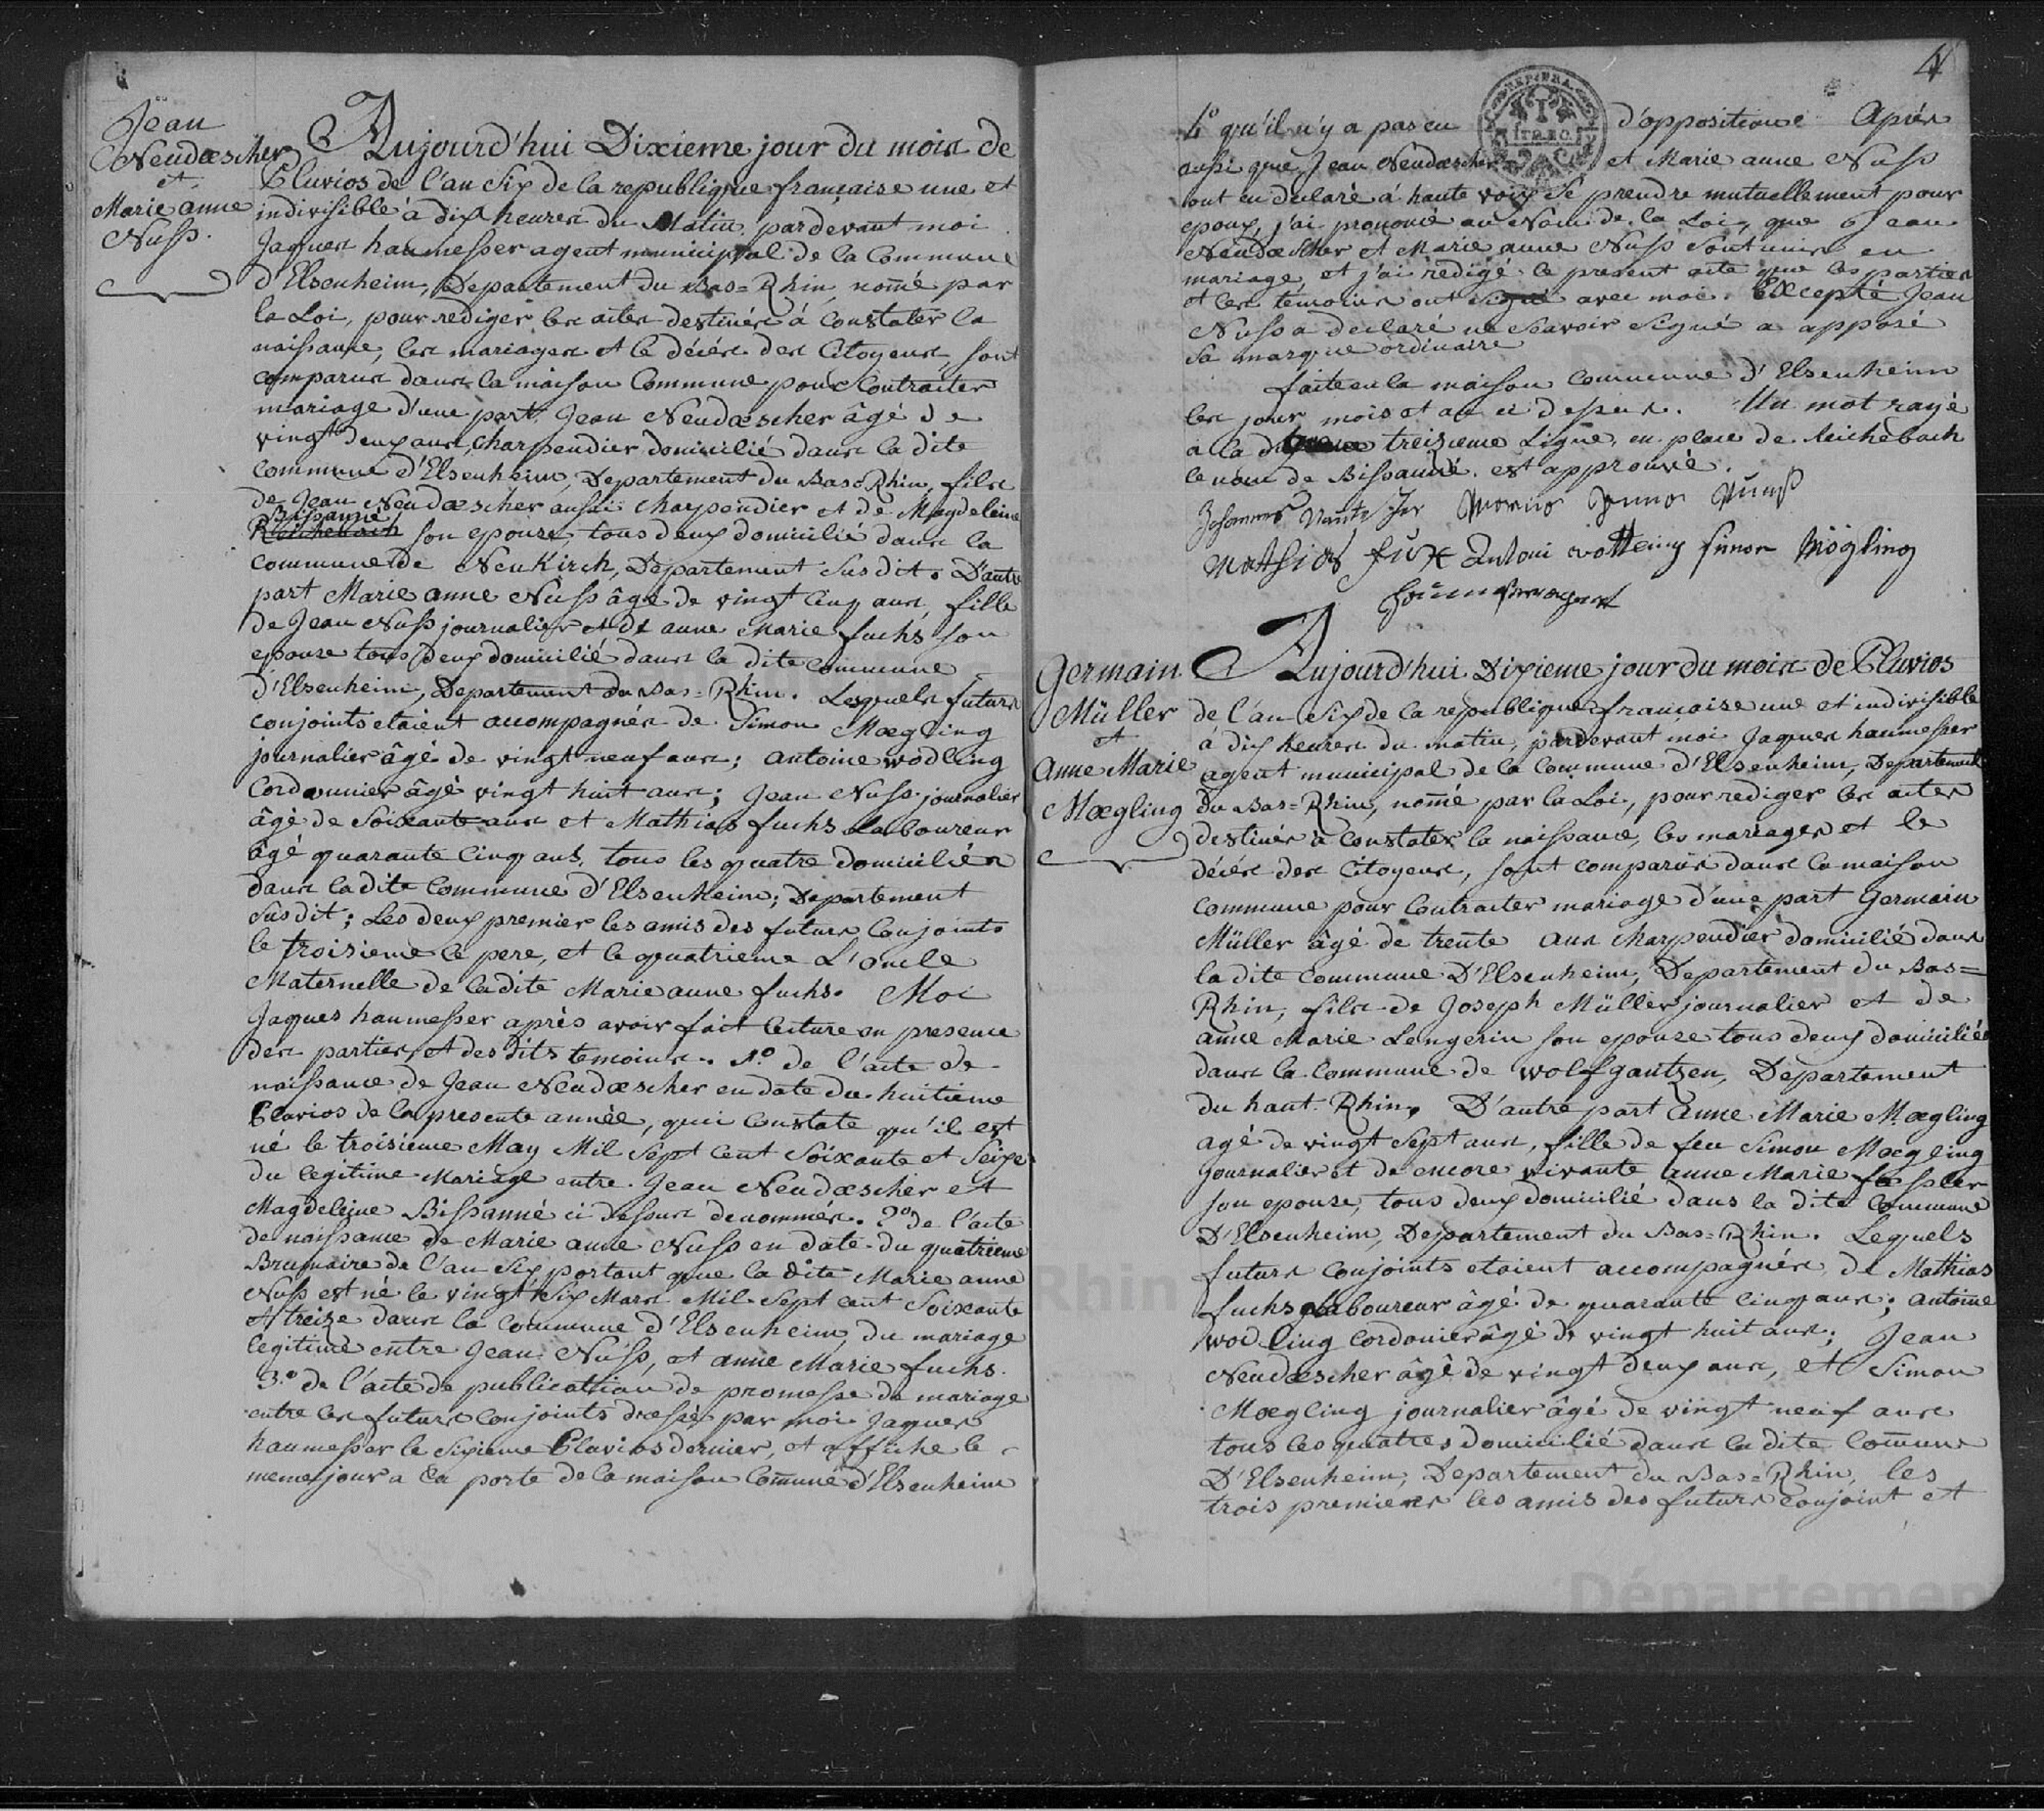 Jean
Neudœscher
et
Marie anne
Nuss.
Aujourd'hui Dixieme jour du mois de
Pluvios de l'an Six de la republique française une et
indivisible à dix heures du Matin pardevant moi
Jaques haumesser agent municipal de la Commune
d'Elsenheim, Departement du Bas=Rhin, nomé par
la Loi, pour rediger les actes destinés à Constater la
naissance, les mariages et le décés des Citoyens sont
comparus dans la maison Commune pour Contracter
mariage d'une part Jean Neudœscher âgé de
vingt deux ans, charpendier domicilié dans la dite
commune d'Elsenheim, Departement du Bas=Rhin, fils
de Jean Neudœscher aussi charpendier et de Magdeleine
Bissanné
Reichebach son epouse tous deux domicilié dans la
commune de Neukirch, Departement Susdit. D'autre
part Marie anne Nuss âgé de vingt cinq ans, fille
de Jean Nuss journalier et de anne Marie fuchs son
epouse tous deux domicilié dans la dite commune
d'Elsenheim, Departement du Bas=Rhin. Lesquels futurs
conjoints etaient accompagnés de Simon Mœgling
journalier âgé de vingt neuf ans; antoine wodling
Cordonnier âgé vingt huit ans; Jean Nuss journalier
âgé de Soixante ans et Mathias fuchs Laboureur
âgé quarante Cinq ans, tous les quatre domiciliés
dans la dite Commune d'Elsenheim; Departement
Susdit; Les deux premier les amis des futurs Conjoints
le troisieme le pere, et le quatrieme L'oncle
Maternelle de la dite Marie anne fuchs. Moi
Jaques haumesser après avoir fait lecture en presence
des parties, et des dits temoins. 1.º de l'acte de
naissance de Jean Neudœscher en date du huitieme
Pluvios de la presente année, qui constate qu'il est
né le troisieme May Mil Sept Cent Soixante et Seize
du legitime Mariage entre Jean Neudœscher et
Magdeleine Bissanné ci dessus denommés. 2º de l'acte
de naissance de Marie anne Nuss en date du quatrieme
Brumaire de l'an Six portant que la dite Marie anne
Nuss est né le vingt Six Mars Mil Sept cent Soixante
et treize dans la Commune d'Elsenheim, du mariage
legitime entre Jean Nuss, et anne Marie fuchs.
3.º de l'acte de publication de promesse de mariage
entre les futurs Conjoints dressé par moi Jaques
haumesser le Sixieme Pluvios dernier, et affiche le
meme jour a la porte de la maison Comune d'Elsenheim
4
4º qu'il n'y a pas eu d'opposition Apiés
ausi que Jean Neudœscher et Marie anne Nuss
ont eu declaré á haute voix Se prendre mutuellement pour
epoux, j'ai prononcé au Nom de la Loi, que Jean
Neudœscher et Marie anne Nuss Sont unis en
mariage, et j'ai redigé le present acte que les parties
et les témoins ont Signé avec moi. Excepté Jean
Nuss a declaré ne Savoir Signé a apposé
Sa marque ordinaire
faite en la maison commune d'Elsenheim
les jour mois et an ci dessus. Un mot rayé
a la treizieme Ligne, en place de Reichebach
le nom de Bissanné. est approuvé.
Johannes
Mathias fux Antoni simon Mögling
Germain
Müller
et
Anne Marie
Mœgling
Aujourd'hui Dixieme jour du mois de Pluvios
de l'an Six de la republique française une et indivisible
à dix heures du matin, pardevant moi Jaques haumesser
agent municipal de la Commune d'Elsenheim, Departement
du Bas=Rhin, nomé par la Loi, pour rediger les actes
destinés à Constater la naissance, les mariages et le
décés des Citoyens, sont comparus dans la maison
commune pour Contracter mariage d'une part Germain
Müller âgé de trente ans charpendier domicilié dans
la dite commune D'Elsenheim, Departement du Bas=
Rhin, fils de Joseph Müller journalier et de
anne Marie Lengerin son epouse tous deux domiciliés
dans la commune de wolfgantzen, Departement
du haut-Rhin, D'autre part Anne Marie Mœgling
agé de vingt Sept ans, fille de feu Simon Mœgling
Journalier et de encore vivante anne Marie fessler
son epouse, tous deux domicilié dans la dite Commune
D'Elsenheim, Departement du Bas=Rhin. Lequels
futurs Conjoints etaient accompagnés de Mathias
fuchs Laboureur âgé de quarante Cinq ans; antoine
wodling Cordonier âgé de vingt huit ans; Jean
Neudœscher âgé de vingt deux ans, et Simon
Mœgling journalier âgé de vingt neuf ans
tous les quatres domicilié dans la dite Comune
D'Elsenheim, Departement du Bas=Rhin, les
trois premiers les amis des futurs Conjoint et